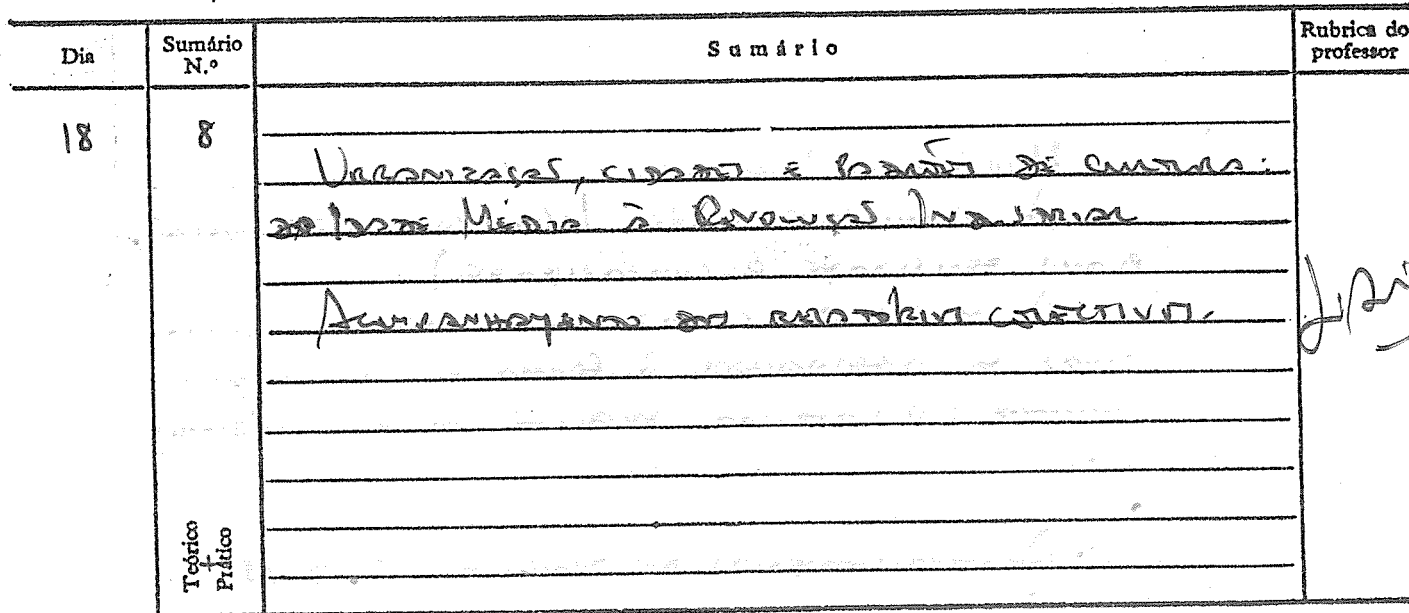 Dia
Sumário N.º
Sumário
Rubrica do professor
18
8
Urbanização, cidades e padrões de cultura:
da Idade Média à Revolução Industrial
Acompanhamento dos relatórios colectivos.
Teórico + Prático